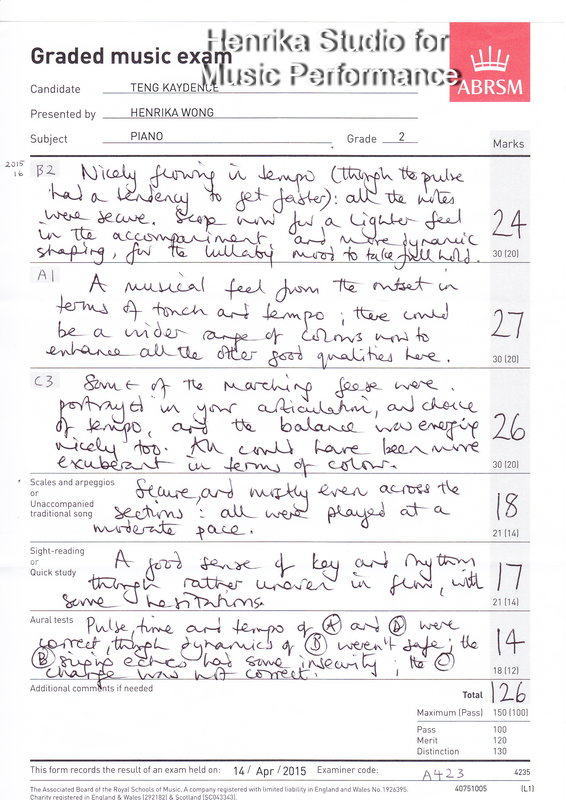 Henrika Studio for
Music Performance
Graded music exam
ABRSM
Candidate TENG KAYDENCE
Presented by HENRIKA WONG
Subject PIANO Grade 2
Marks
2015
16
B2 Nicely flowing in tempo (though the pulse
had a tendency to get faster): all the notes
were secure. Scope now for a lighter feel
in the accompaniment and more dynamic
shaping, for the lullaby mood to take full hold.
24
30 (20)
A1 A musical feel from the outset in
terms of touch and tempo; there could
be a wider range of colours now to
enhance all the other good qualities here.
27
30 (20)
C3 Some of the marching geese were
portrayed in your articulation, and choice
of tempo, and the balance was emerging
nicely too. All could have been more
exuberant in terms of colour.
26
30 (20)
Scales and arpeggios
or
Unaccompanied
traditional song
Secure, and mostly even across the
sections: all were played at a
moderate pace.
18
21 (14)
Sight-reading
or
Quick study
A good sense of key and rhythm
though rather uneven in flow, with
some hesitations.
17
21 (14)
Aural tests Pulse, time and tempo of A and D were
correct, though dynamics of D weren't safe; the
B singing echoes had some insecurity; the C
change was not correct.
14
18 (12)
Additional comments if needed
Total 126
Maximum (Pass) 150 (100)
Pass 100
Merit 120
Distinction 130
This form records the result of an exam held on: 14 / Apr / 2015 Examiner code: A423 4235
The Associated Board of the Royal Schools of Music. A company registered with limited liability in England and Wales No.1926395. 40751005 (L1)
Charity registered in England & Wales (292182) & Scotland (SC043343).